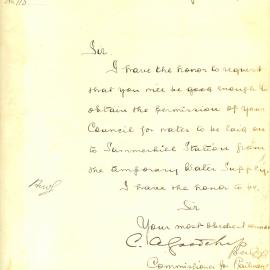 Sir
I have the honor to request
that you will be good enough to
obtain the permission of your
Council for water to be laid on
to Summerhill Station from
the temporary Water Supply.
I have the honor to be,
Sir
Your most obedient servant
C. A. Goodchap
Commissioner for Railways